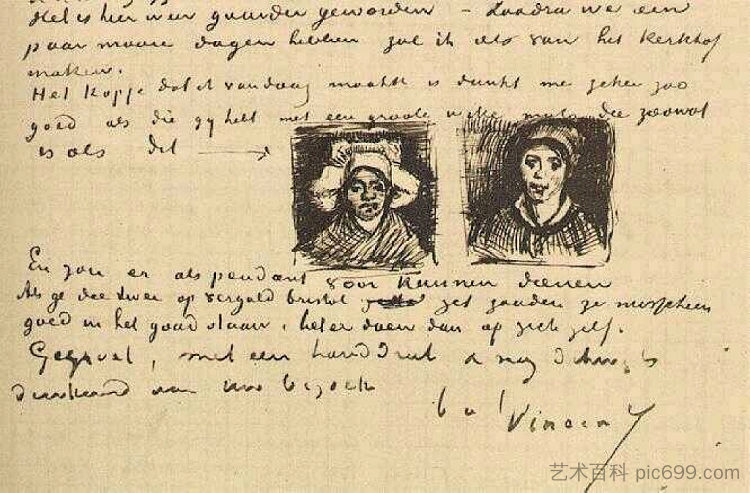 Het is hier weer guurder geworden – Zoodra we een
paar mooie dagen hebben zal ik iets van het kerkhof
maken.
Het kopje dat ik vandaag maakte is dunkt me zeker zoo
goed als die gy hebt met een groote witte muts die zoowat
is als dit
En zou er als pendant voor kunnen dienen
Als ge die twee op verguld bristol zet zouden ze misschien
goed in het goud staan, heter doen dan op zich zelf.
Gegroet, met een handdruk & nog
dankend van uw bezoek
t. à t.
Vincent
艺术百科 pic699.com